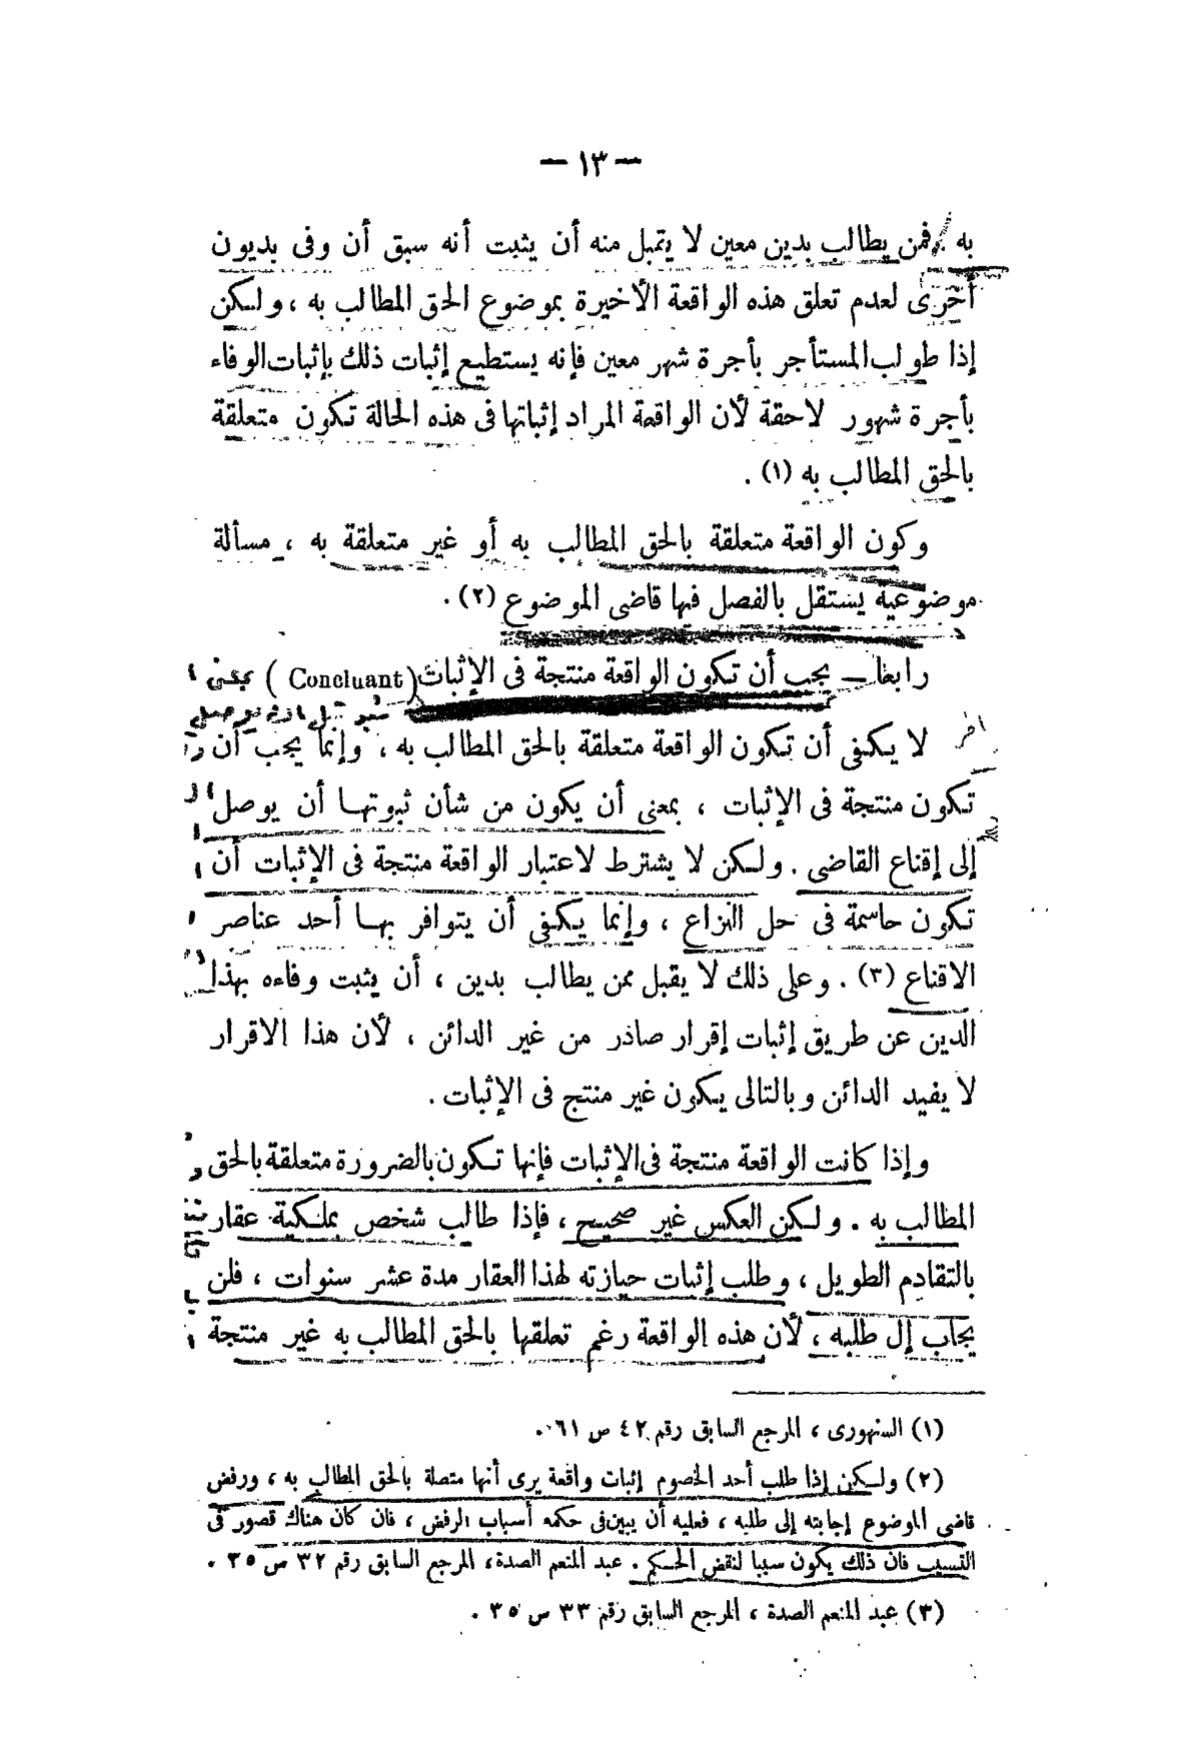 — ١٣ —
به . فمن يطالب بدين معين لا يقبل منه أن يثبت أنه سبق أن وفى بديون
أخرى لعدم تعلق هذه الواقعة الأخيرة بموضوع الحق المطالب به ، ولكن
إذا طولب المستأجر بأجرة شهر معين فإنه يستطيع إثبات ذلك بإثبات الوفاء
بأجرة شهور لاحقة لأن الواقعة المراد إثباتها فى هذه الحالة تكون متعلقة
بالحق المطالب به (١) .
وكون الواقعة متعلقة بالحق المطالب به أو غير متعلقة به ، مسألة
موضوعية يستقل بالفصل فيها قاضى الموضوع (٢) .
رابعا — يجب أن تكون الواقعة منتجة فى الإثبات (Concluant)
لا يكفى أن تكون الواقعة متعلقة بالحق المطالب به ، وإنما يجب أن
تكون منتجة فى الإثبات ، بمعنى أن يكون من شأن ثبوتها أن يوصل
إلى إقناع القاضى . ولكن لا يشترط لاعتبار الواقعة منتجة فى الإثبات أن
تكون حاسمة فى حل النزاع ، وإنما يكفى أن يتوافر بها أحد عناصر
الاقناع (٣) . وعلى ذلك لا يقبل ممن يطالب بدين ، أن يثبت وفاءه بهذا
الدين عن طريق إثبات إقرار صادر من غير الدائن ، لأن هذا الاقرار
لا يفيد الدائن وبالتالى يكون غير منتج فى الإثبات .
وإذا كانت الواقعة منتجة فى الإثبات فإنها تكون بالضرورة متعلقة بالحق
المطالب به . ولكن العكس غير صحيح ، فإذا طالب شخص بملكية عقار
بالتقادم الطويل ، وطلب إثبات حيازته لهذا العقار مدة عشر سنوات ، فلن
يجاب إلى طلبه ، لأن هذه الواقعة رغم تعلقها بالحق المطالب به غير منتجة
(١) السنهورى ، المرجع السابق رقم ٤٢ ص ٦١ .
(٢) ولكن إذا طلب أحد الخصوم إثبات واقعة يرى أنها متصلة بالحق المطالب به ، ورفض
قاضى الموضوع إجابته إلى طلبه ، فعليه أن يبين فى حكمه أسباب الرفض ، فان كان هناك قصور فى
التسبيب فان ذلك يكون سببا لنقض الحكم . عبد المنعم الصدة، المرجع السابق رقم ٣٢ ص ٣٥ .
(٣) عبد المنعم الصدة ، المرجع السابق رقم ٣٣ ص ٣٥ .